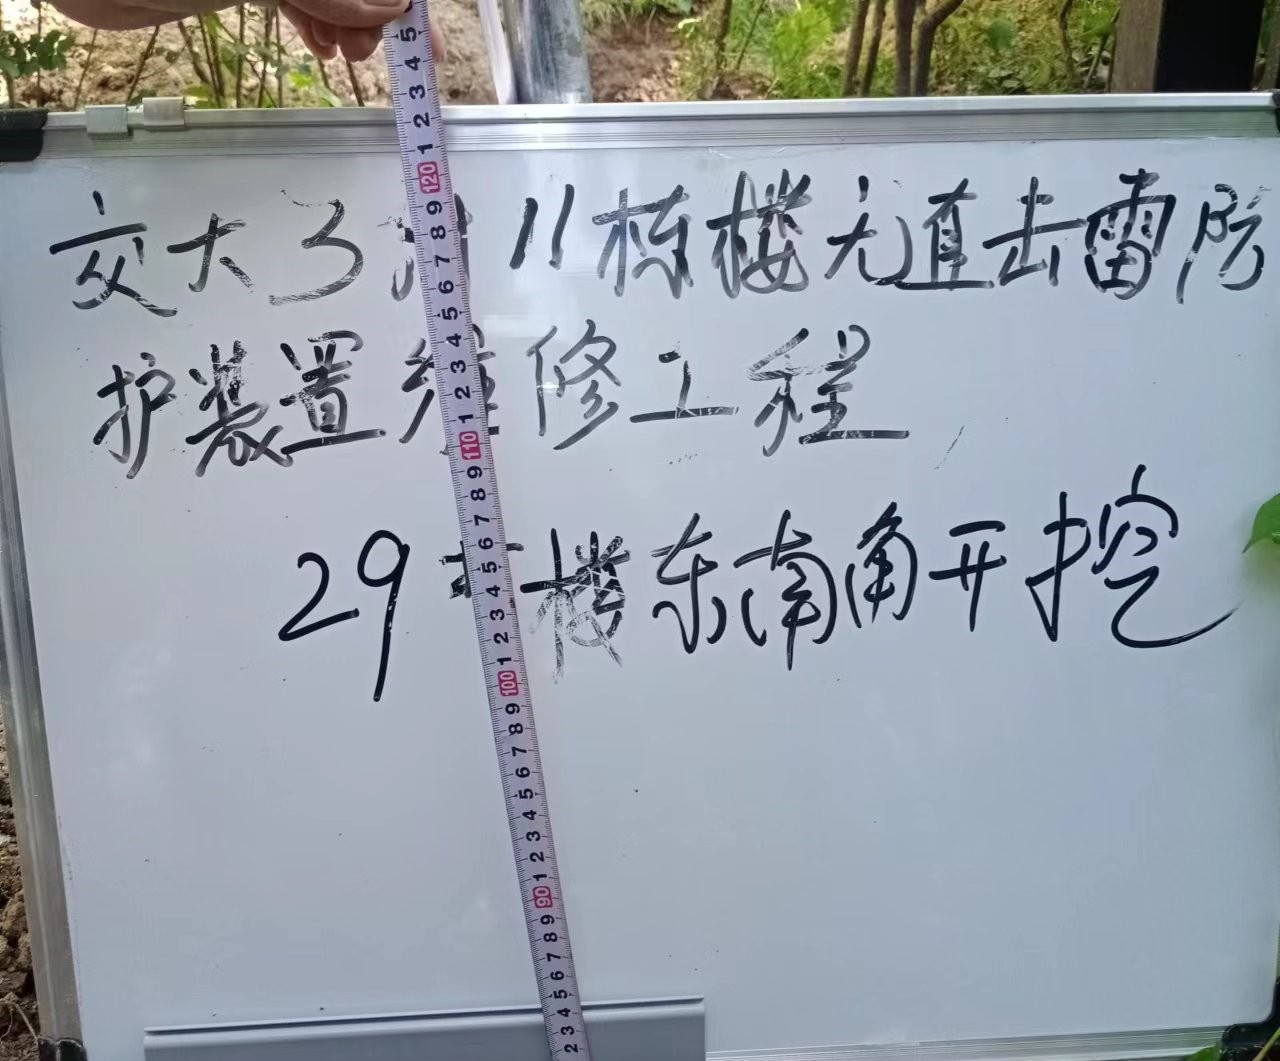 交大3 11栋楼无直击雷防
护装置维修工程
29 楼东南角开挖
5
4
3
2
1
120
9
8
7
6
5
4
3
2
1
110
9
8
7
6
5
4
3
2
1
100
9
8
7
6
5
4
3
2
1
90
9
8
7
6
5
4
3
2